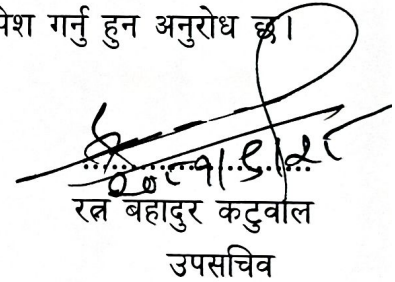 पेश गर्नु हुन अनुरोध छ।
२०८१।९।२८
रत्न बहादुर कटुवाल
उपसचिव